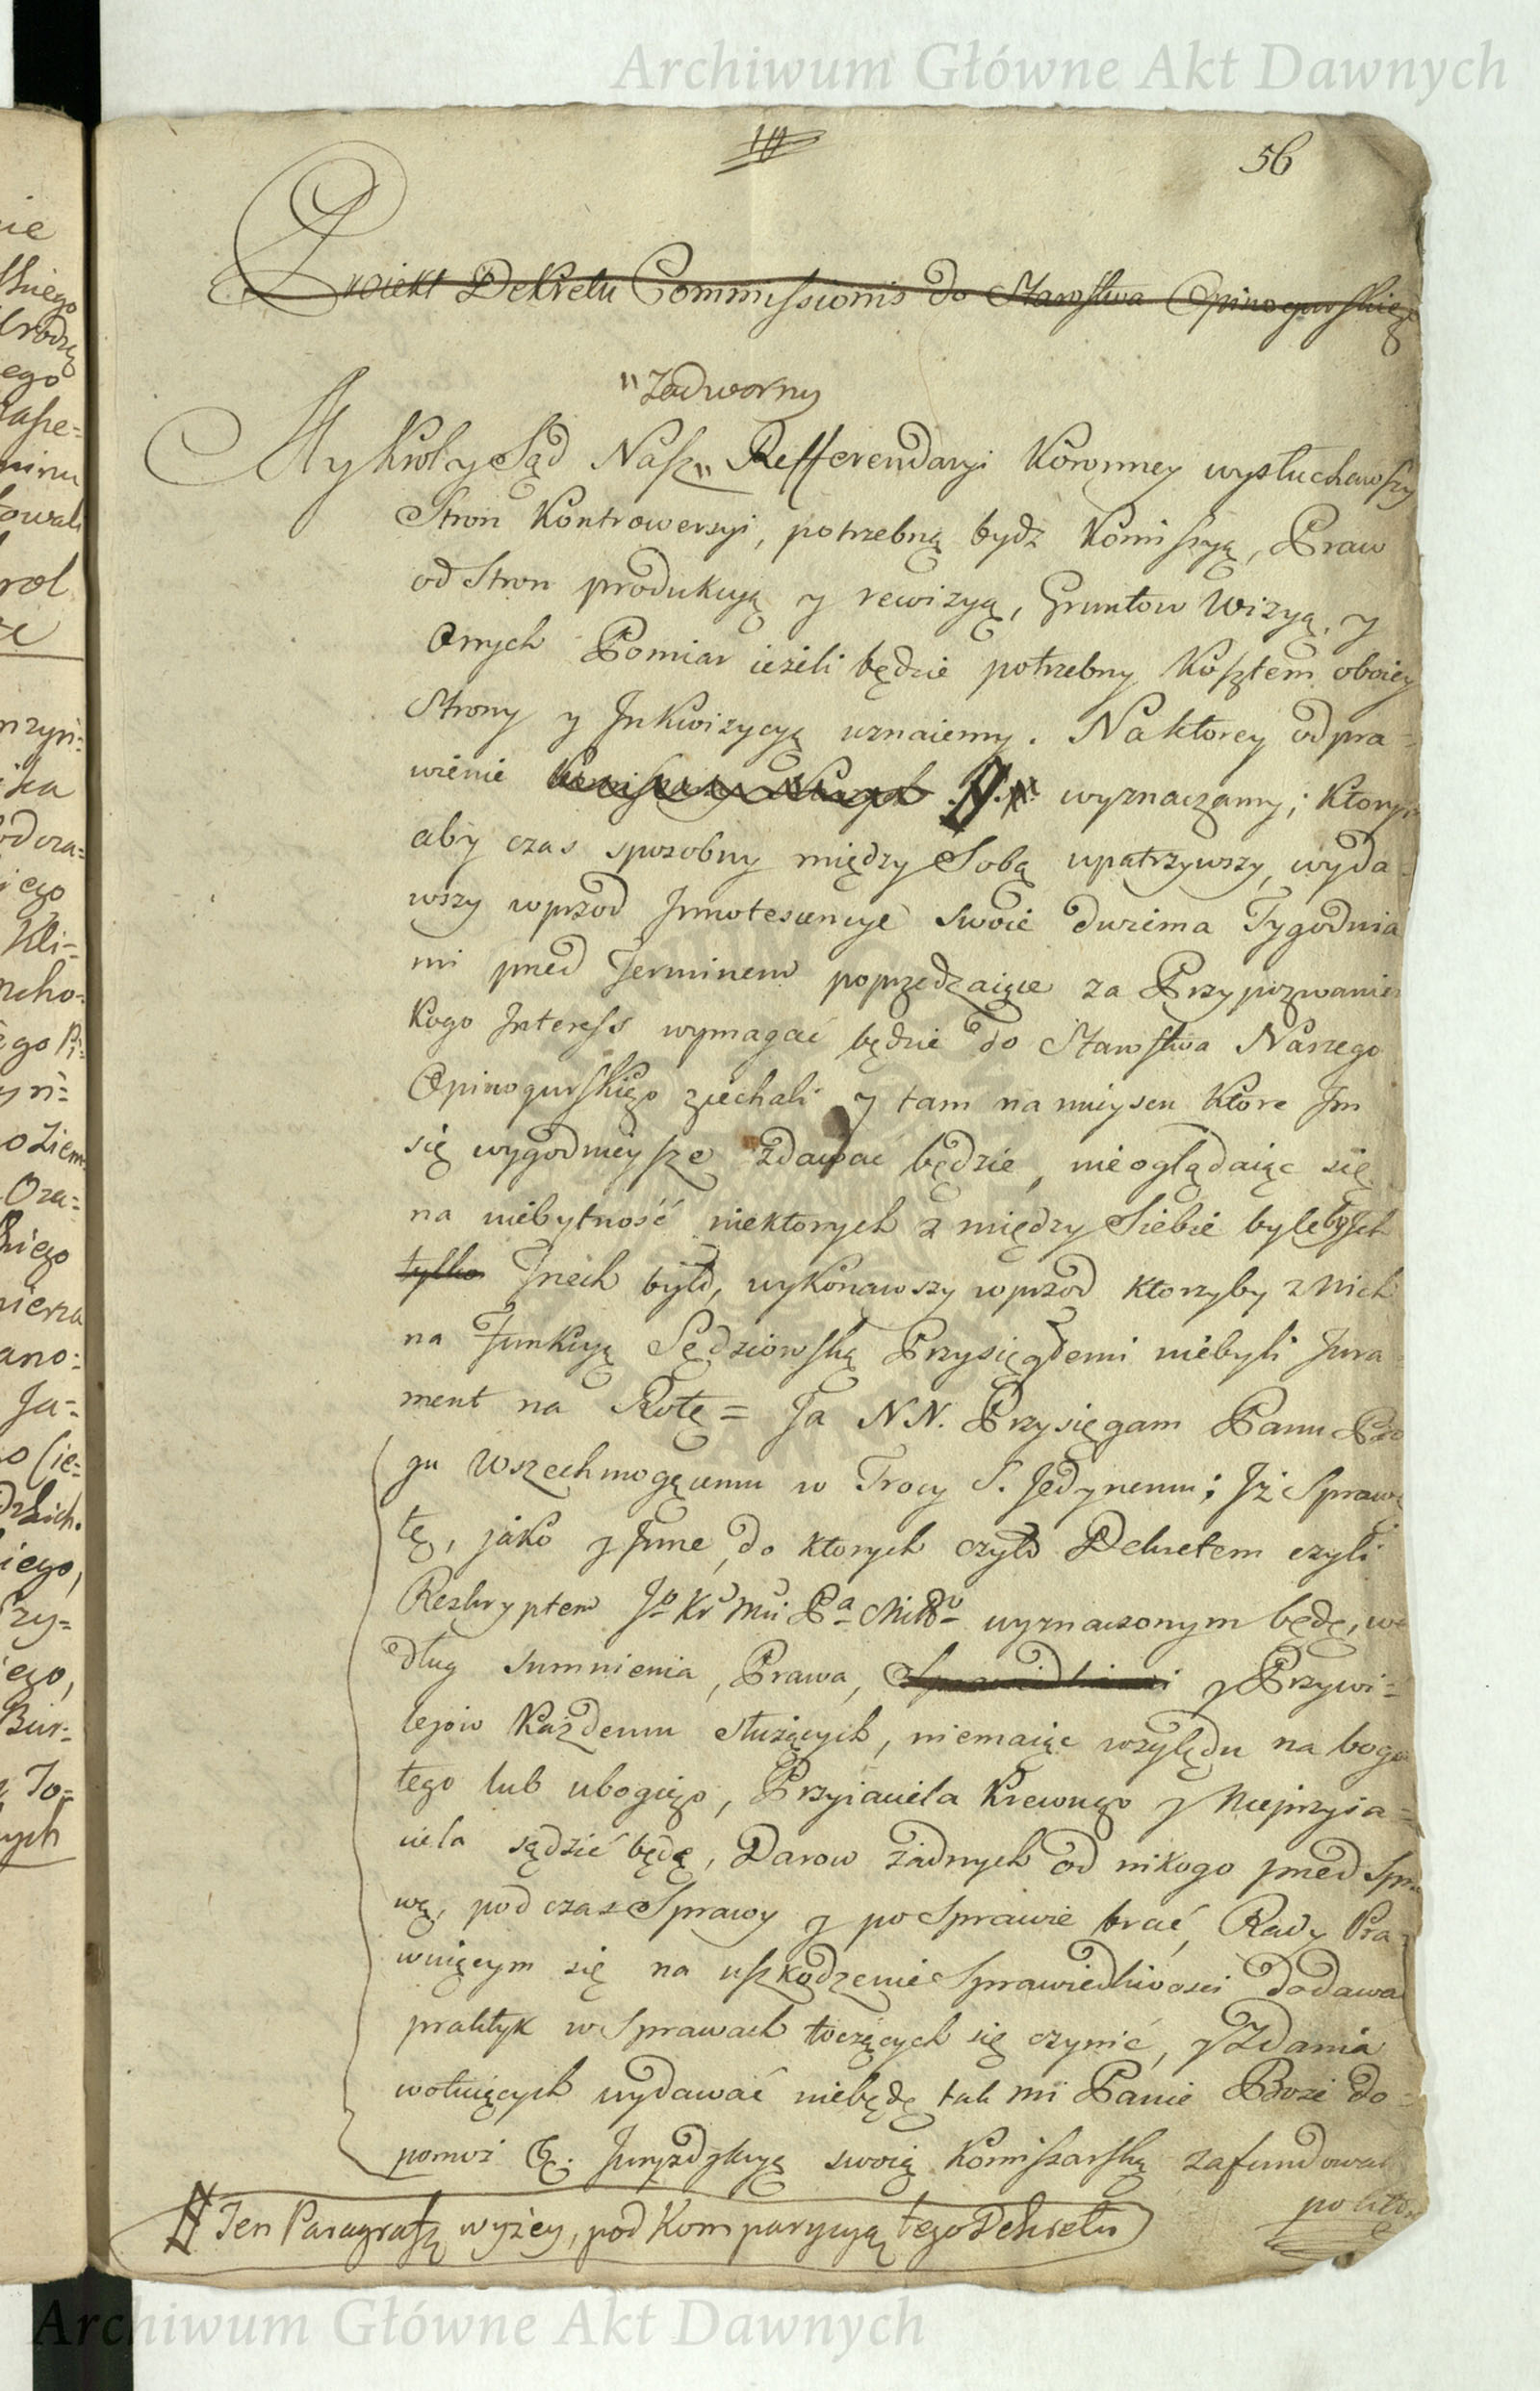 Archiwum Główne Akt Dawnych
10
56
Proiekt Dekretu Commissionis do Starostwa Opinogurskiego
"Zadworny
My Krol y Sąd Nasz" Refferendaryi Koronney wysłuchawszy
Stron Kontrowersyi, potrzebną bydz Komiszyą, Praw
od Stron produkcyą y rewizyą, Gruntow Wizyą, y
Onych Pomiar ieżeli będzie potrzebny Kosztem oboiey
Strony y Inkwizycyą uznaiemy. Na ktorey odpra=
wienie wyznaczamy; Ktorzy
aby czas sposobny między Sobą upatrzywszy, wyda=
wszy wprzod Innotescencye swoie dwiema Tygodnia
mi przed Terminem poprzedzaiące za Przypozwaniem
Kogo Interess wymagać będzie do Starostwa Naszego
Opinogurskiego ziechali y tam na mieyscu Ktore Im
się wygodnieysze zdawać będzie, nieoglądaiąc się
na niebytność niektorych z między Siebie byleby Ich
tylko Trzech było, wykonawszy wprzod ktorzyby z Nich
na Funkcyą Sędziowską Przysięgłemi niebyli Jura=
ment na Rotę = Ja NN. Przysięgam Panu Bo
gu Wszechmogącemu w Trocy S. Jedynemu; Iż Sprawę
tę, jako y Inne, do ktorych czyło Dekretem czyli
Reskryptem Jo Kr Mci Pa Miło wyznaczonym będę, we
dług sumnienia, Prawa, Sprawiedliwosci y Przywi=
lejow Każdemu służących, niemaiąc względu na boga
tego lub ubogiego, Przyiaciela Krewnego y Nieprzyia=
ciela sądzić będę, Darow żadnych od nikogo przed Spra
wą, pod czas Sprawy y po Sprawie brać, Rady Pra=
wuiącym się na uszkodzenie Sprawiedliwosci dodawa
praktyk w Sprawach toczących się czynić, y Zdania
wotuiących wydawać niebędę tak mi Panie Boże do=
pomoż &c. Juryzdykcyą swoią Komiszarską zafundowali
po lito
Ten Paragraf wyżey, pod Komparycyą tego Dekretu
Archiwum Główne Akt Dawnych